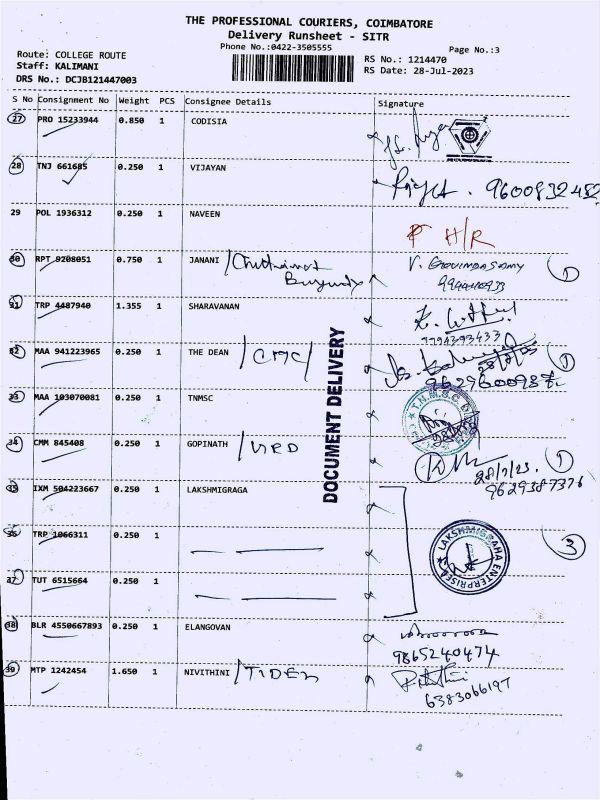 THE PROFESSIONAL COURIERS, COIMBATORE
Delivery Runsheet - SITR
Phone No.:0422-3505555
Page No.:3
Route: COLLEGE ROUTE
Staff: KALIMANI
DRS No.: DCJB121447003
RS No.: 1214470
RS Date: 28-Jul-2023
S No Consignment No Weight PCS Consignee Details Signature
27 PRO 15233944 0.850 1 CODISIA
28 TNJ 661685 0.250 1 VIJAYAN 9600832452
29 POL 1936312 0.250 1 NAVEEN H/R
30 RPT 9208051 0.750 1 JANANI / V. GOVINDASAMY 1
31 TRP 4487940 1.355 1 SHARAVANAN
7794393433
32 MAA 941223965 0.250 1 THE DEAN /CMC/ 1
33 MAA 103070081 0.250 1 TNMSC
T.N.M.S.C.
34 CMM 845408 0.250 1 GOPINATH / 1
28/7/23.
9629387376
35 IXM 504223667 0.250 1 LAKSHMIGRAGA
36 TRP 1066311 0.250 1 3
LAKSHMIGRAHA ENTERPRISES
37 TUT 6515664 0.250 1
38 BLR 4550667893 0.250 1 ELANGOVAN
9865240474
39 MTP 1242454 1.650 1 NIVITHINI /TIDEL
6383066197
DOCUMENT DELIVERY